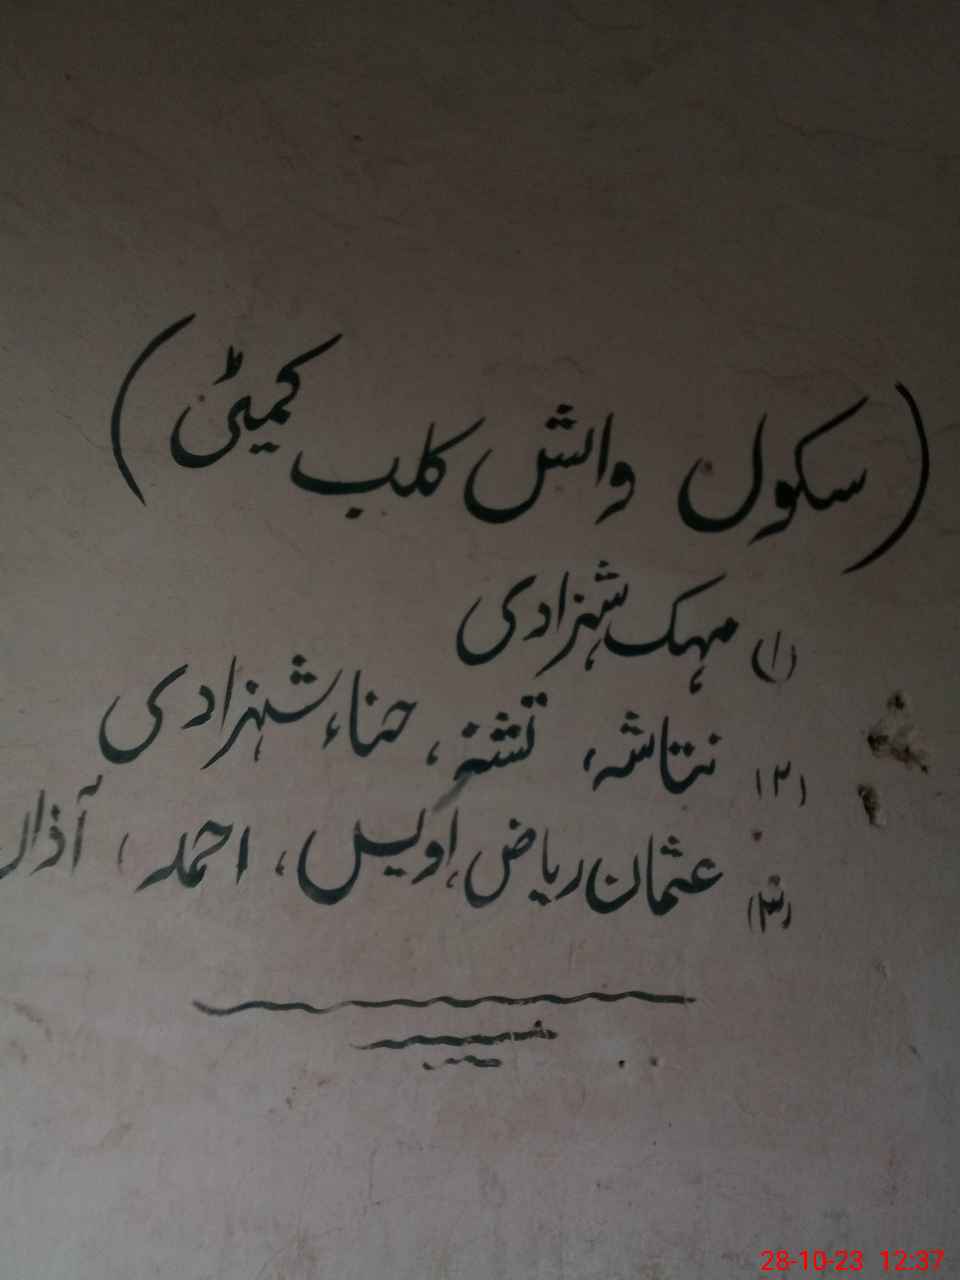 (سکول واش کلب کمیٹی)
(۱) مہک شہزادی
(۲) نتاشہ، تشنہ، حناء شہزادی
(۳) عثمان ریاض، اویس، احمد، آذان
28-10-23 12:37